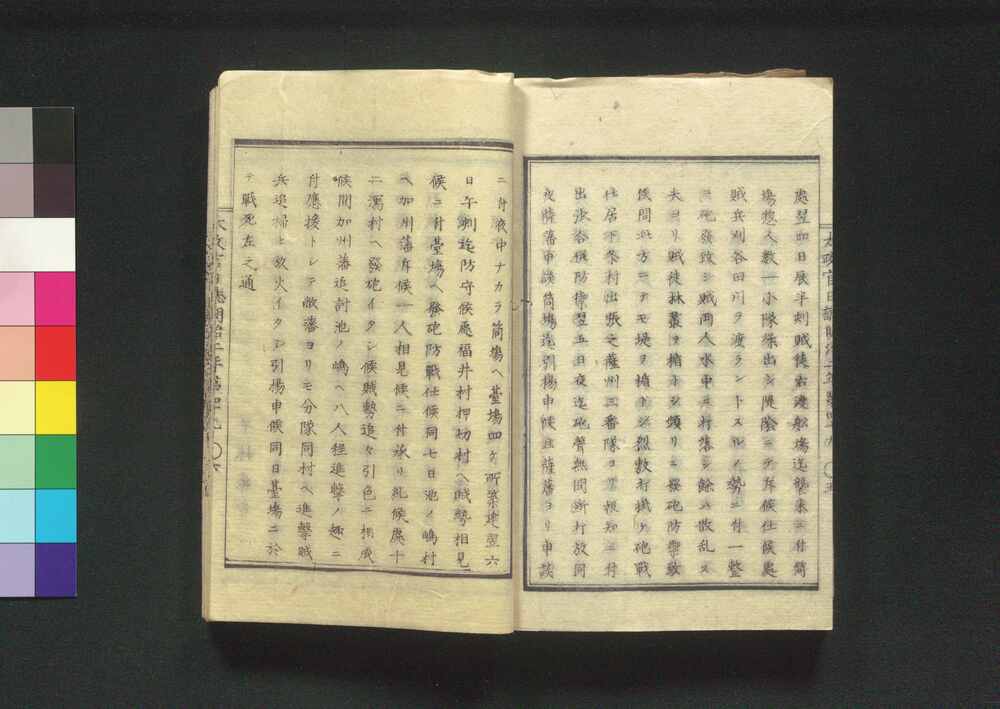 處翌四日辰半刻賊徒右渡船場迄襲来ニ付筒
場捜人数一小隊保出シ隄陰ニテ斥候仕候處
賊兵刈谷田川ヲ渡ラントスルノ勢ニ付一整
ニ砲發致シ賊両人水中ニ村落シ餘ハ散乱ス
夫ヨリ賊徒林叢ヲ楯トシ頻リニ發砲防禦致
候間此方ニテモ堤ヲ楯トシ烈敷打機ケ砲戦
仕居下条村出張之薩州三番隊ヨリ報知ニ付
出張各橛防禦翌五日夜迄砲聲無間断打放同
夜薩藩申談筒場迄引揚申候且薩藩ヨリ申談
ニ付夜中ナカラ筒場ヘ䑓場四ケ所築造翌六
日午刻迄防守候處福井村押切村ヘ賊勢相見
候ニ付䑓場ヘ發砲防戦仕候同七日池ノ嶋村
ヘ加州藩斥候一人相見候ニ付承リ糺候處十
二潟村ヘ發砲イタシ候賊勢追々引色ニ相成
候間加州藩追討池ノ嶋ヘ八人程進撃ノ趣ニ
付應援トシテ敝藩ヨリモ分隊同村ヘ進撃賊
兵追掃ヒ放火イタシ引揚申候同日䑓場ニ於
テ戦死左之通